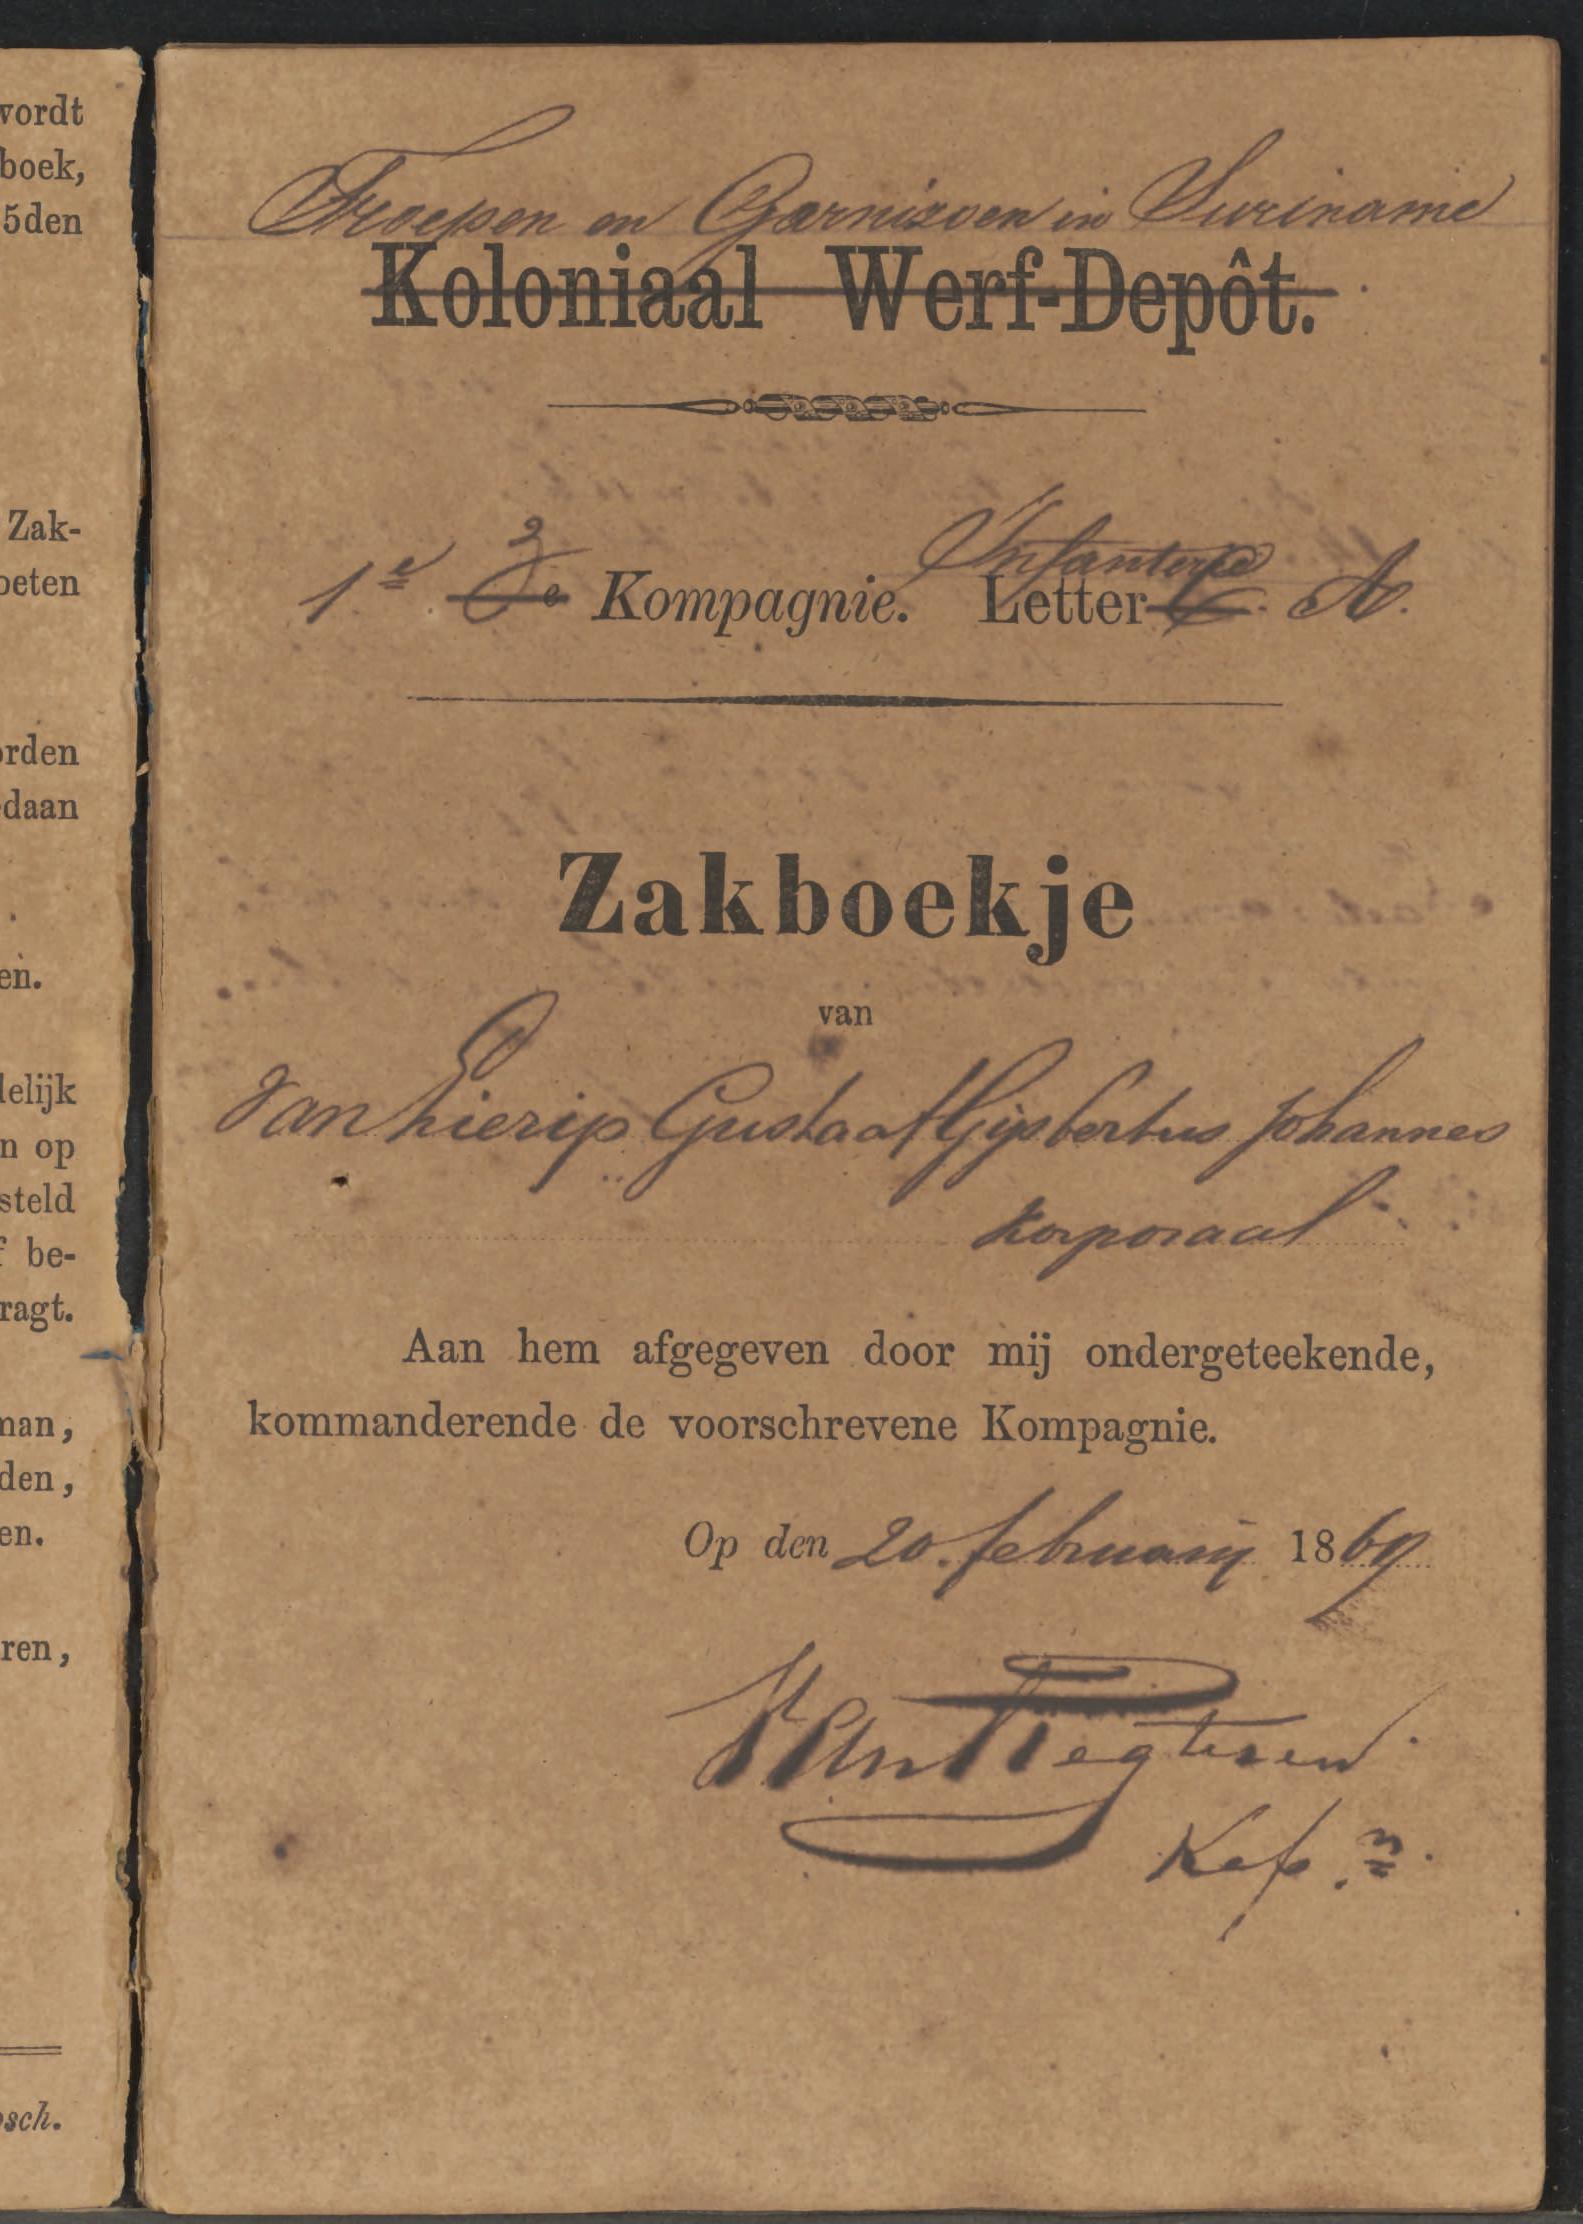 wordt
boek,
5den
Zak-
oeten
orden
daan
en.
delijk
n op
steld
f be-
ragt.
man,
den,
en.
ren,
osch.
Troepen en Garnizoen in Suriname
Koloniaal Werf-Depôt.
Infanterie
1e 3e Kompagnie. Letter C. A.
Zakboekje
van
Van Lierip Gustaaf Gijsbertus Johannes
Korporaal
Aan hem afgegeven door mij ondergeteekende,
kommanderende de voorschrevene Kompagnie.
Op den 20. februarij 1869
Kapn.